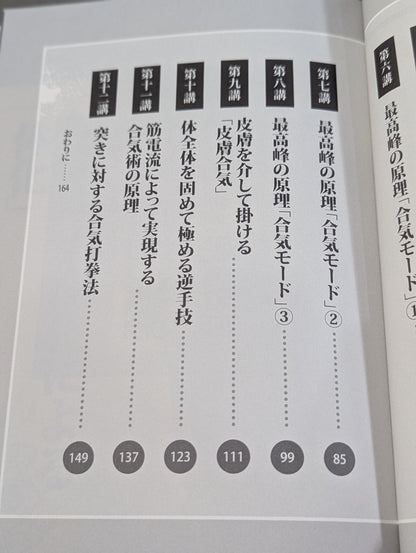 第六講
最高峰の原理「合気モード」①
第七講
最高峰の原理「合気モード」②
85
第八講
最高峰の原理「合気モード」③
99
第九講
皮膚を介して掛ける
「皮膚合気」
111
第十講
体全体を固めて極める逆手技
123
第十一講
筋電流によって実現する
合気術の原理
137
第十二講
突きに対する合気打拳法
149
おわりに……164